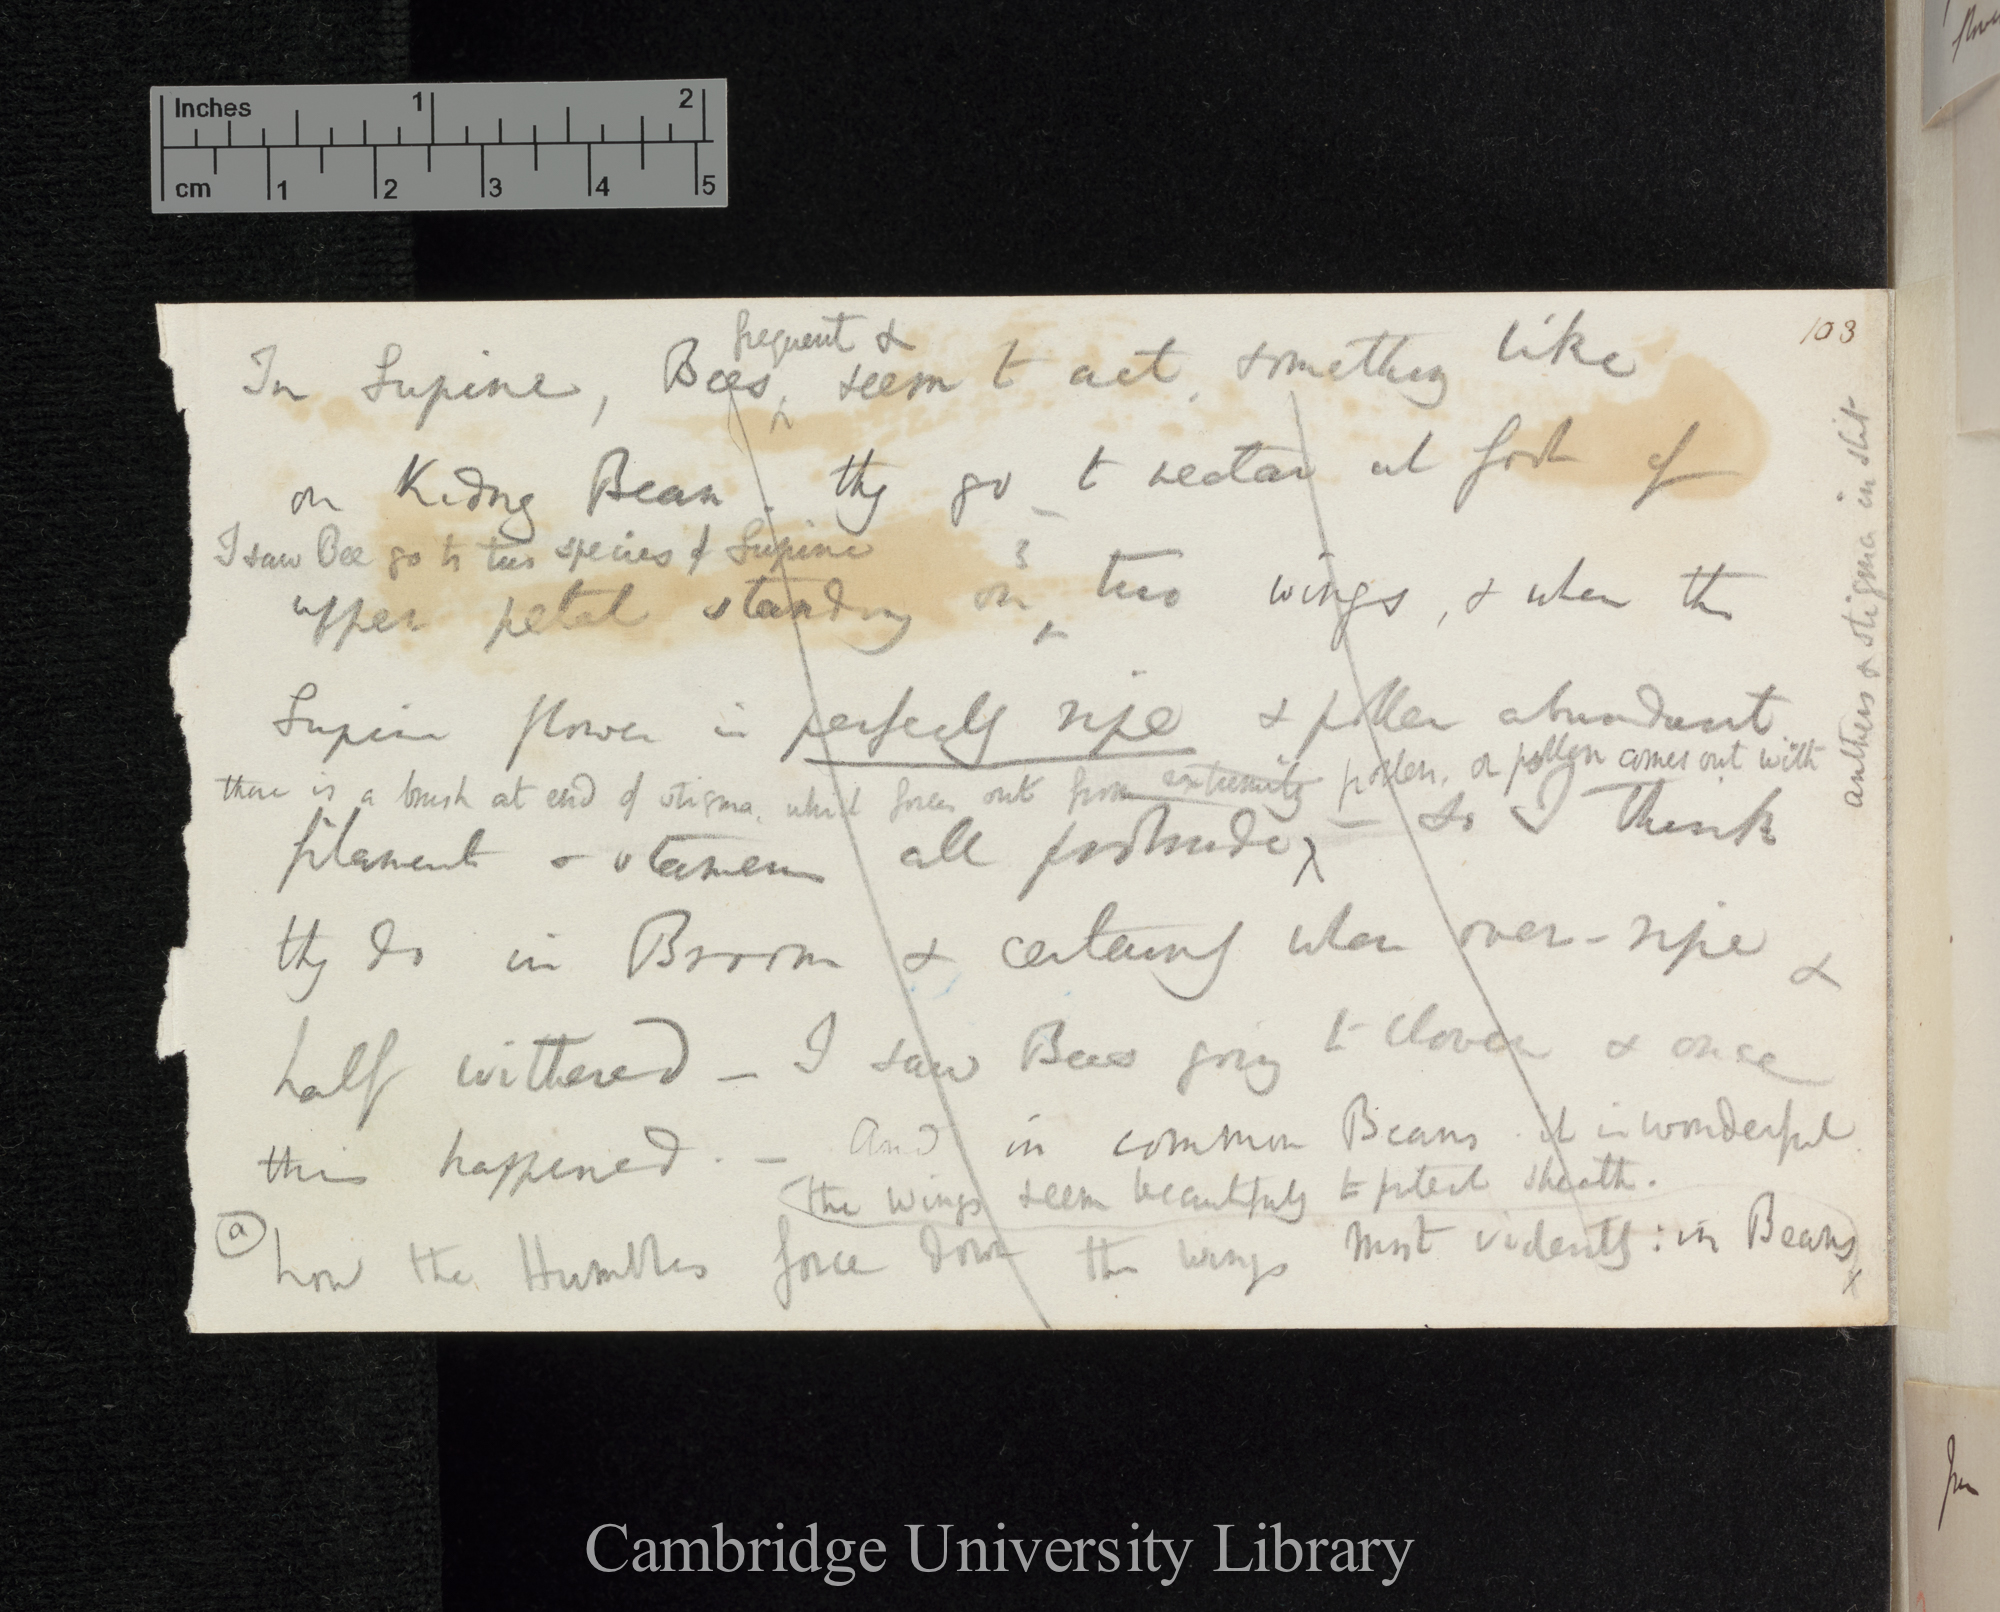 Inches 1 2
cm 1 2 3 4 5
103
frequent &
In Lupine, Bees, seem to act something like
on Kidney Bean. they go to nectar at foot of
I saw Bee go to two species of Lupine
upper petal standing on 3 two wings, & when the
Lupine flower is perfectly ripe & pollen abundant
there is a brush at end of stigma. which forces out from extremity pollen. or pollen comes out with
anthers & stigma in slit
filament & stamens all protrude, — So I think
they do in Broom & certainly when over-ripe &
half withered — I saw Bees going to clover & once
this happened. — And in common Beans it is wonderful
the wings seem beautifully to protect sheath.
(a) how the Humbles force down the wings most evidently: in Beans
Cambridge University Library